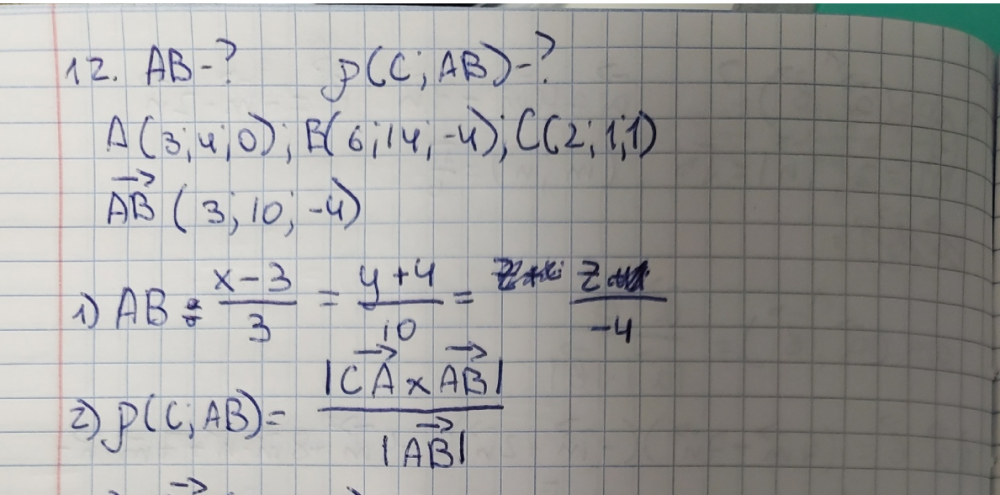 12. AB-? ρ(C; AB)-?
A(3;4;0); B(6;14;-4); C(2;1;1)
AB (3; 10; -4)
1) AB: x-3/3 = y+4/10 = z/-4
2) ρ(C; AB)= |CA x AB|/|AB|